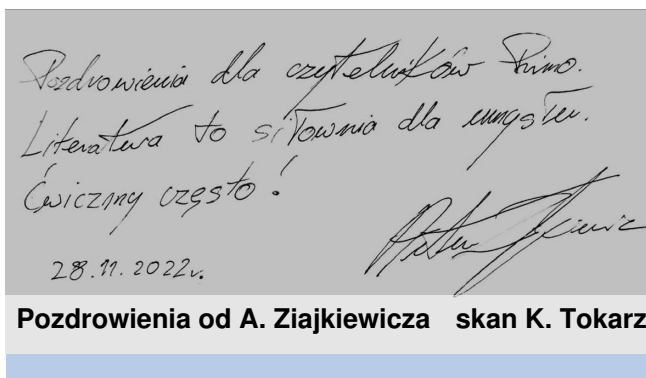 Pozdrowienia dla czytelników Primo.
Literatura to siłownia dla umysłu.
Ćwiczmy często!
28.11.2022r.
Pozdrowienia od A. Ziajkiewicza skan K. Tokarz